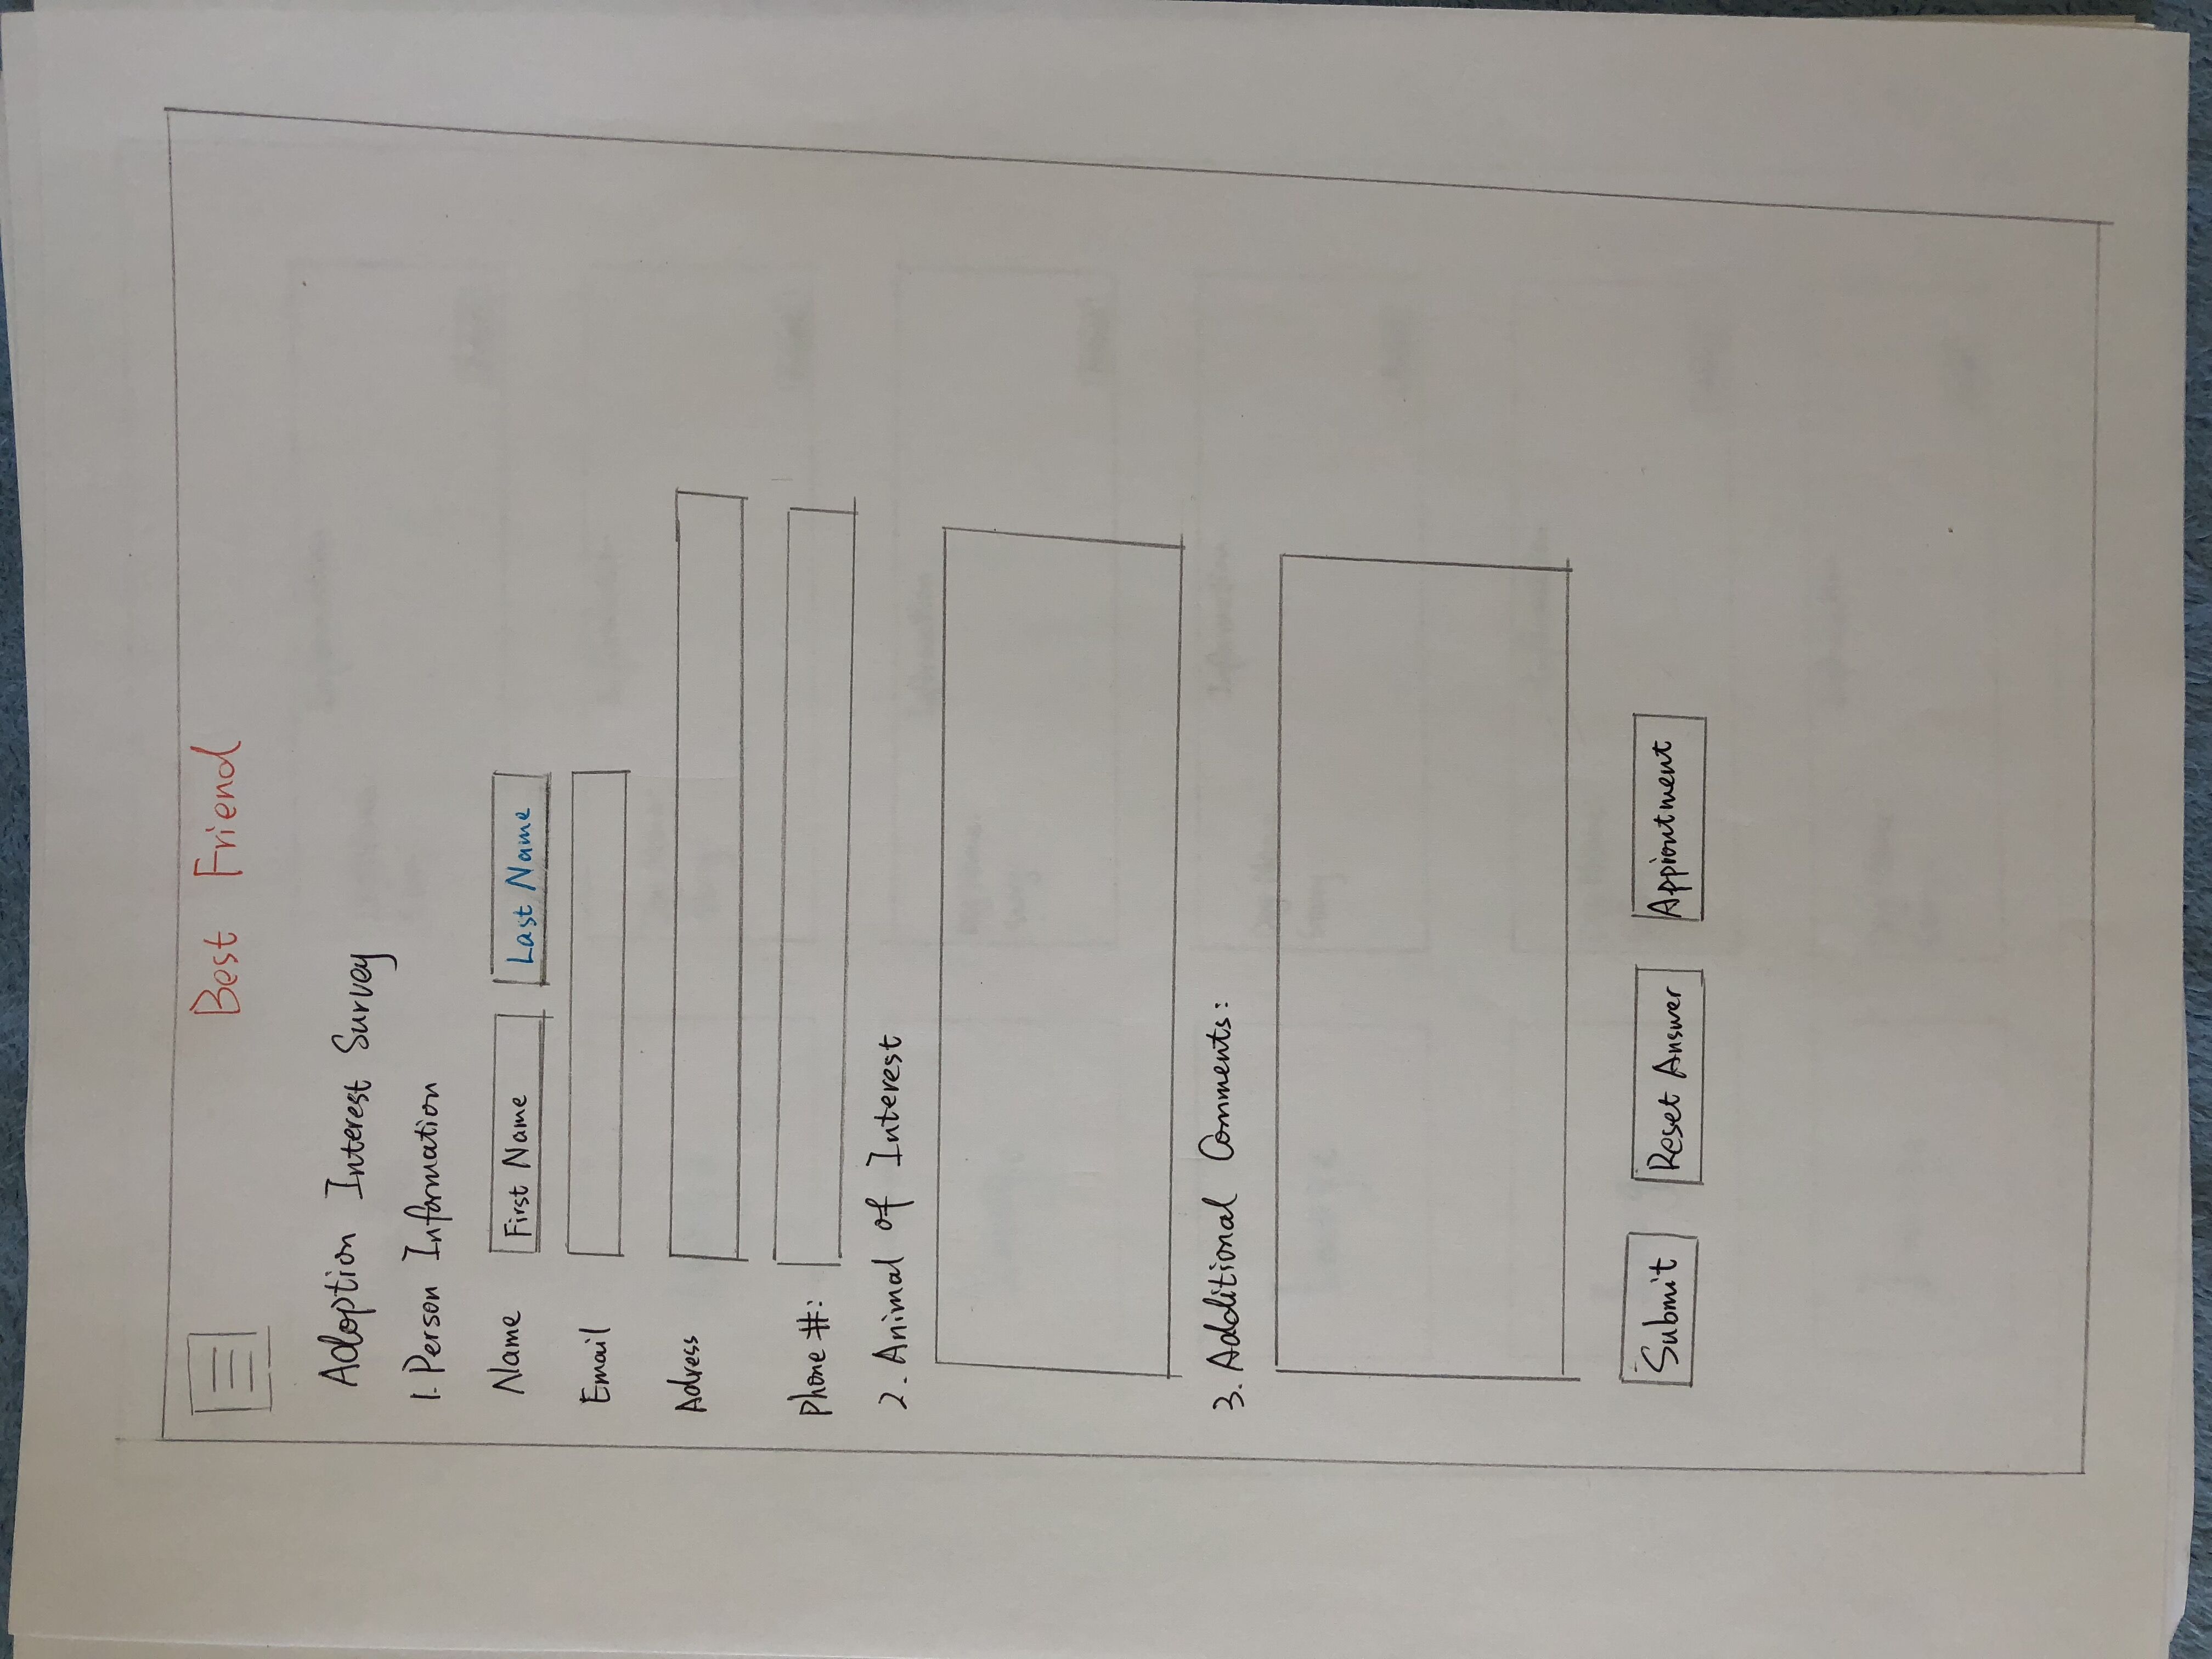 Best Friend
Adoption Interest Survey
1. Person Information
Name First Name Last Name
Email
Adress
Phone #:
2. Animal of Interest
3. Additional Comments:
Submit Reset Answer Appiontment